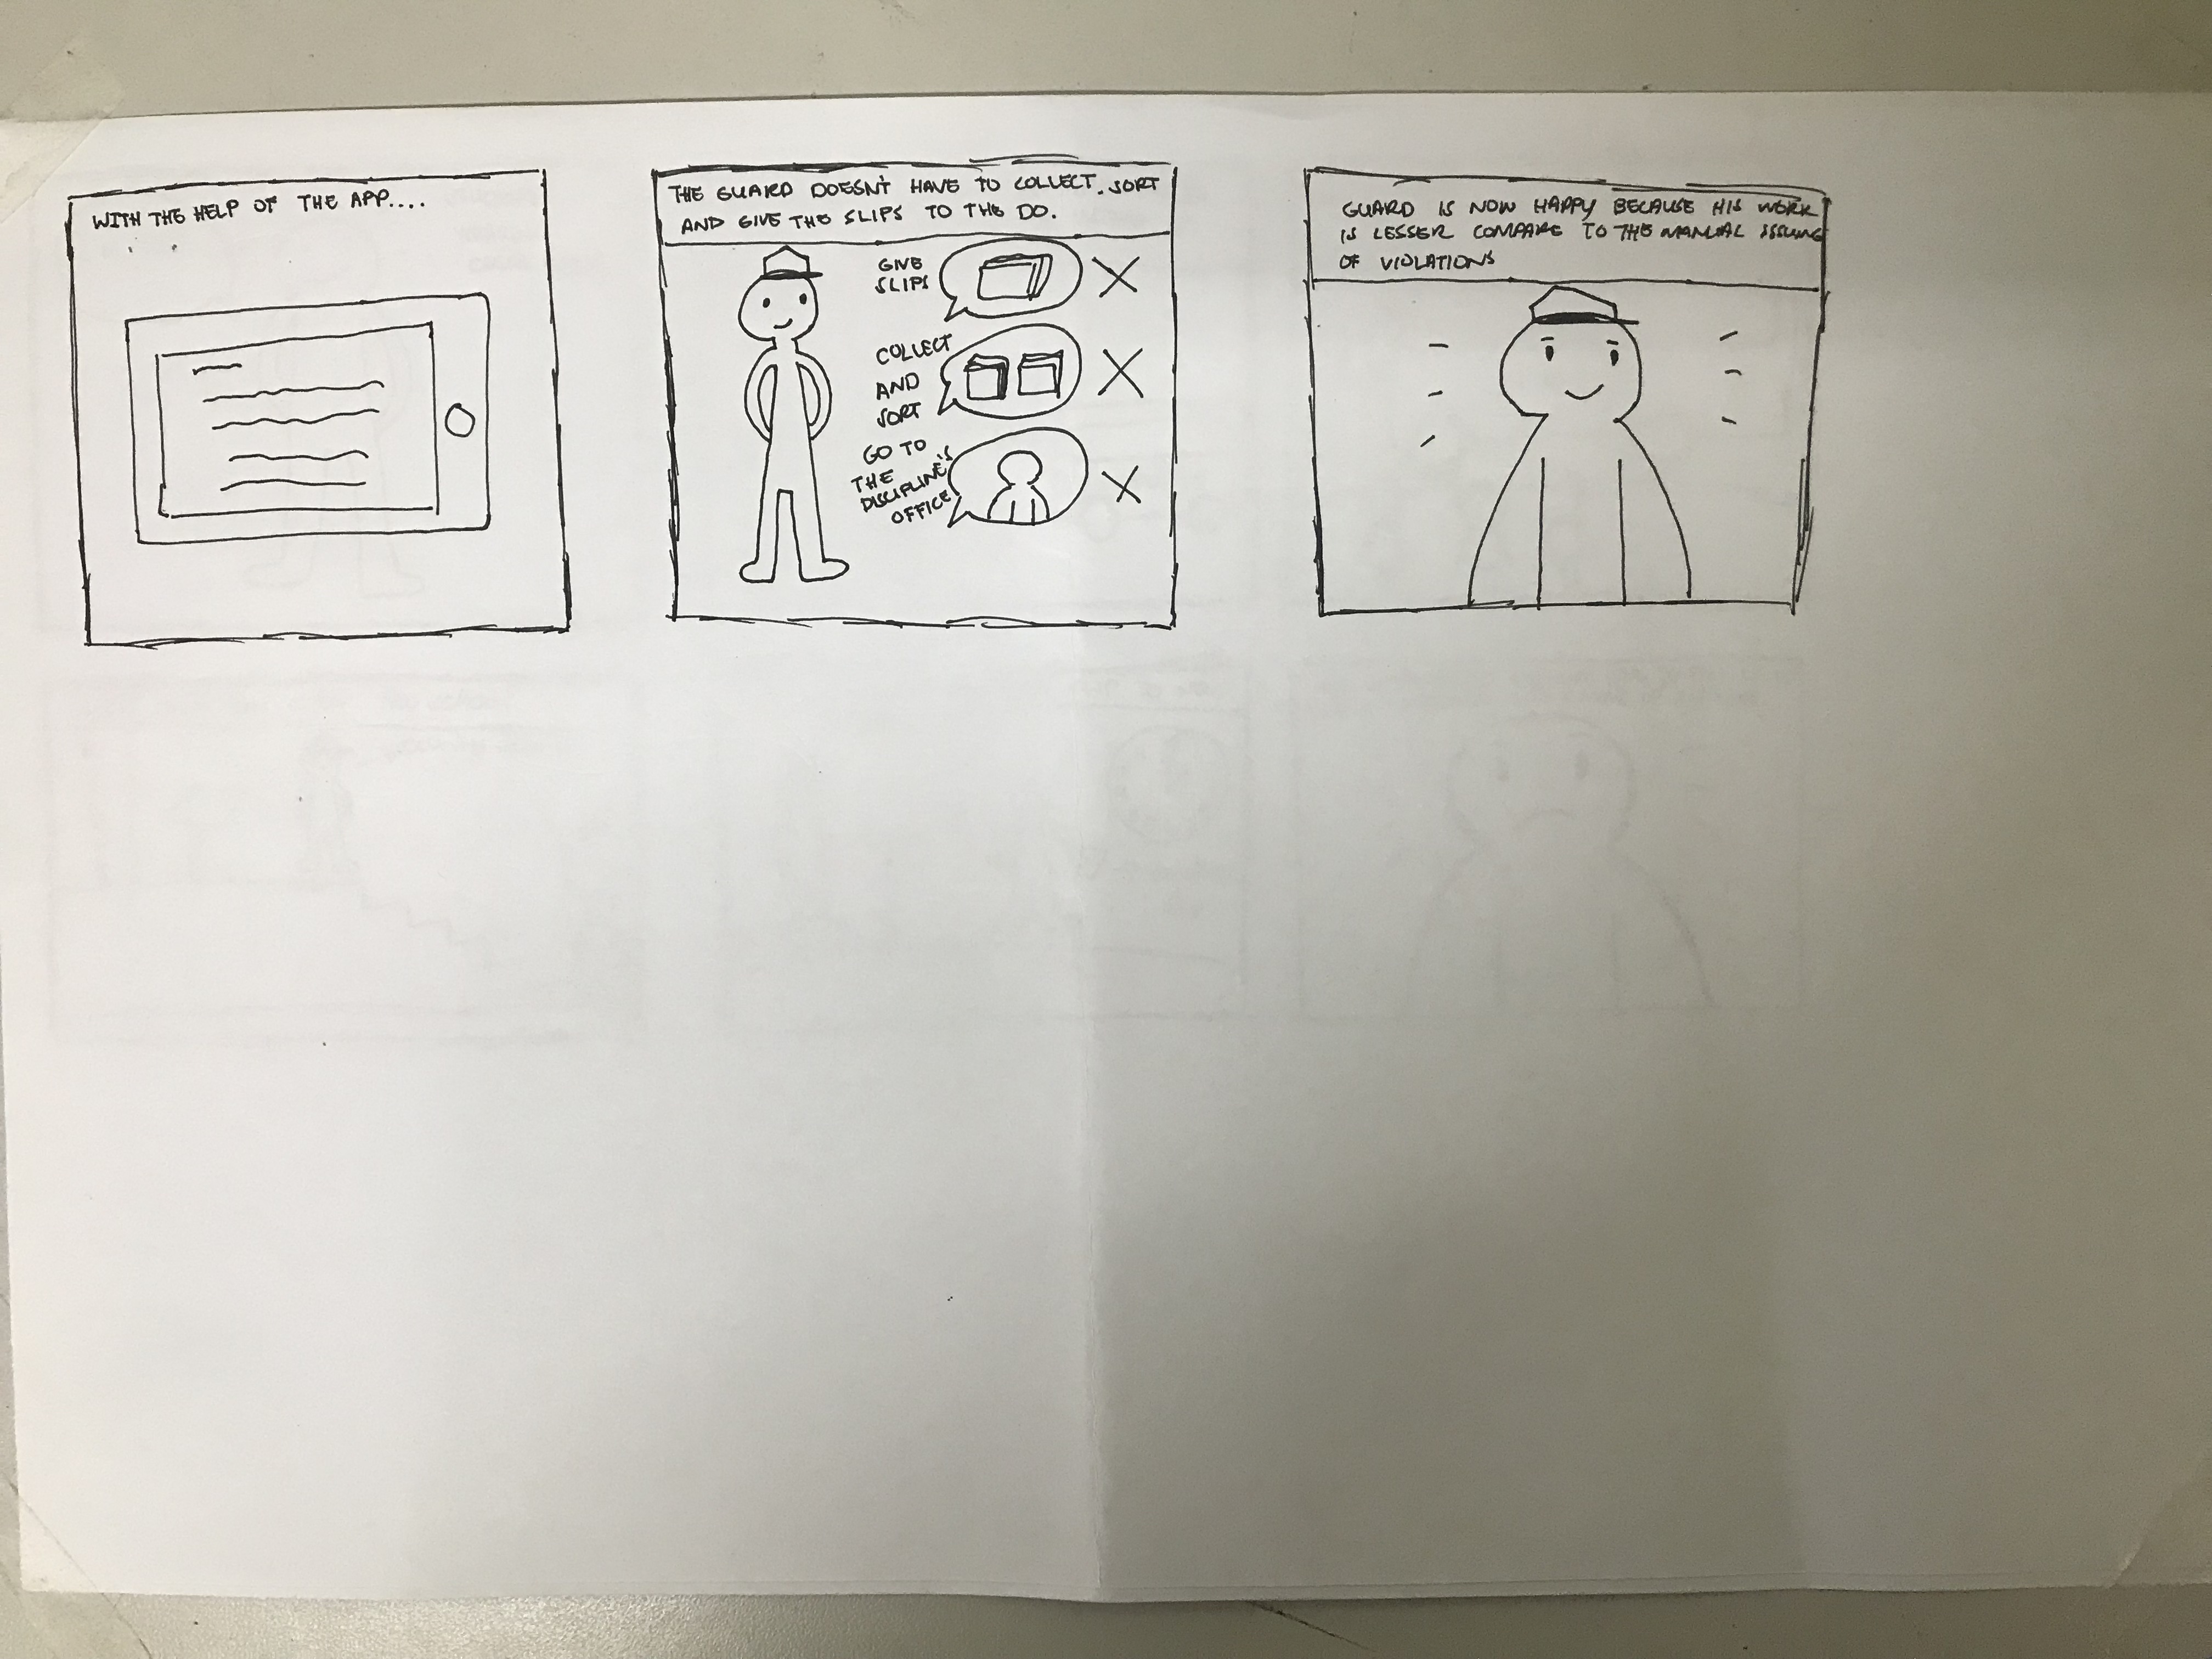 WITH THE HELP OF THE APP....
THE GUARD DOESN'T HAVE TO COLLECT, SORT
AND GIVE THE SLIPS TO THE DO.
GIVE
SLIPS
COLLECT
AND
SORT
GO TO
THE
DISCIPLINE'S
OFFICE
GUARD IS NOW HAPPY BECAUSE HIS WORK
IS LESSER COMPARE TO THE MANUAL ISSUING
OF VIOLATIONS